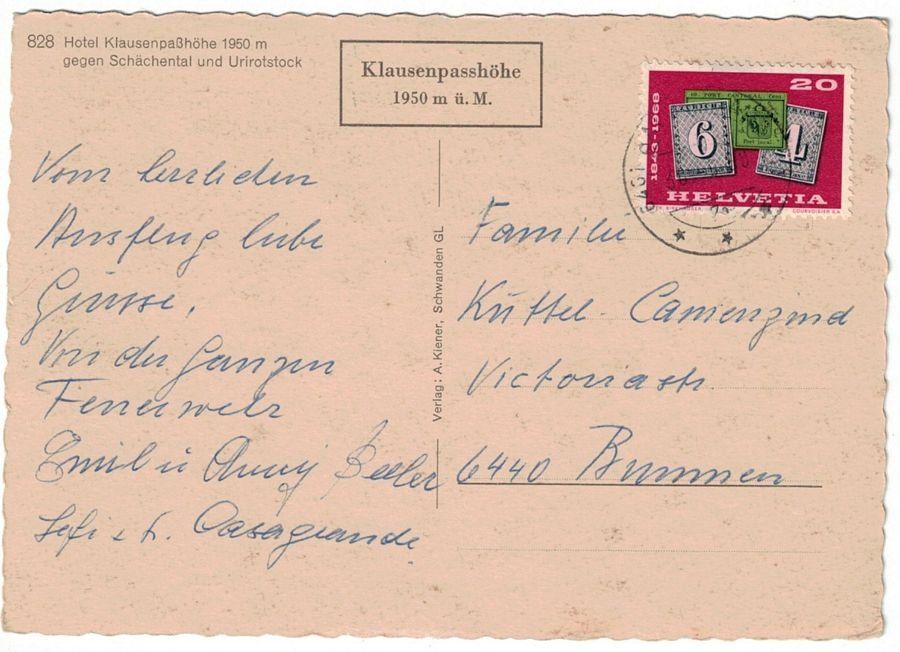 828 Hotel Klausenpaßhöhe 1950 m
gegen Schächental und Urirotstock
Klausenpasshöhe
1950 m ü. M.
20
1843-1968
6
4
HELVETIA
COURVOISIER S.A.
Vom herrlichen
Ausflug liebe
Grüsse,
Von der Ganzen
Feuerwehr
Emil u Anny Beeler
Sefi u. Casagrande
Verlag: A. Kiener, Schwanden GL
Familie
Küttel-Camenzind
Victoriastr.
6440 Brunnen